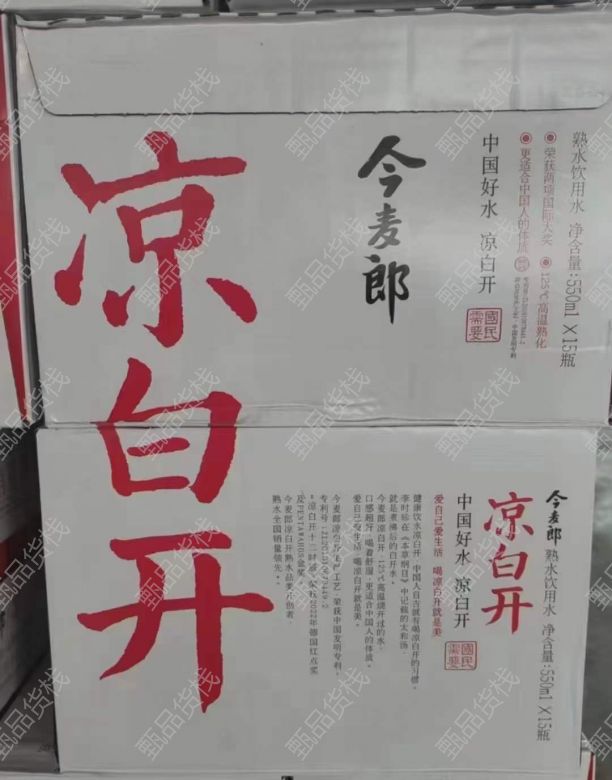 凉白开
今麦郎
熟水饮用水 净含量:550ml×15瓶
荣获两项国际大奖 125℃高温熟化
更适合中国人的体质
中国好水 凉白开
國民需要
今麦郎
熟水饮用水 净含量:550ml×15瓶
凉白开
中国好水 凉白开
國民需要
爱自己爱生活 喝凉白开就是美
健康饮水凉白开,中国人自古就有喝凉白开的习惯,
李时珍在《本草纲目》中记载的太和汤,
就是煮沸后的白开水。
今麦郎凉白开,125℃高温烧开过的水,
口感超好,喝着舒服,更适合中国人的体质。
爱自己爱生活,喝凉白开就是美。
今麦郎凉白开生产工艺,荣获中国发明专利,
凉白开十二时辰,荣获2022年德国红点奖
及PENTAWARDS金奖
今麦郎凉白开熟水品类开创者,
熟水全国销量领先。
甄品货栈